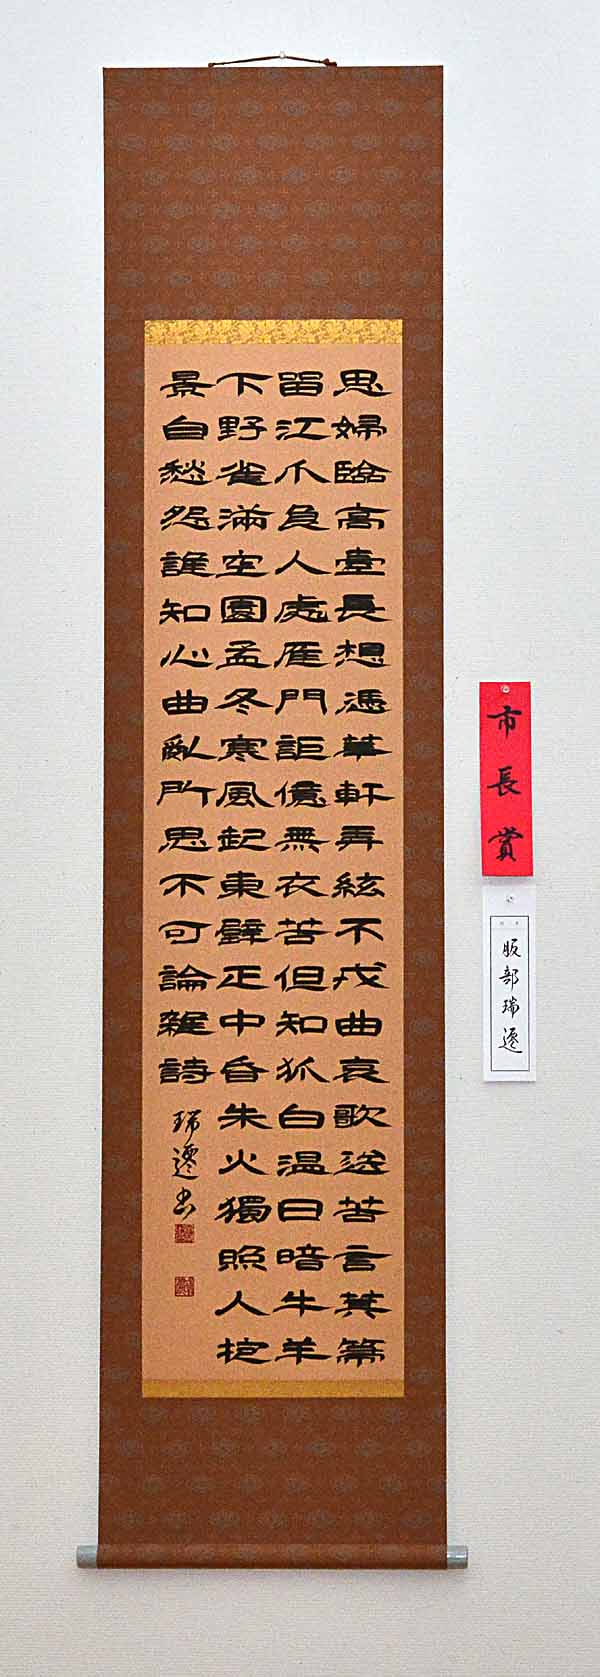 思婦臨高臺長想憑華軒弄絃不成曲哀歌送苦言其箒
留江介良人處雁門詎億無衣苦但知狐白温日暗牛羊
下野雀滿空園孟冬寒風起東壁正中昏朱火獨照人抱
景自愁怨誰知心曲亂所思不可論雜詩
瑞遷書
市長賞
服部瑞遷